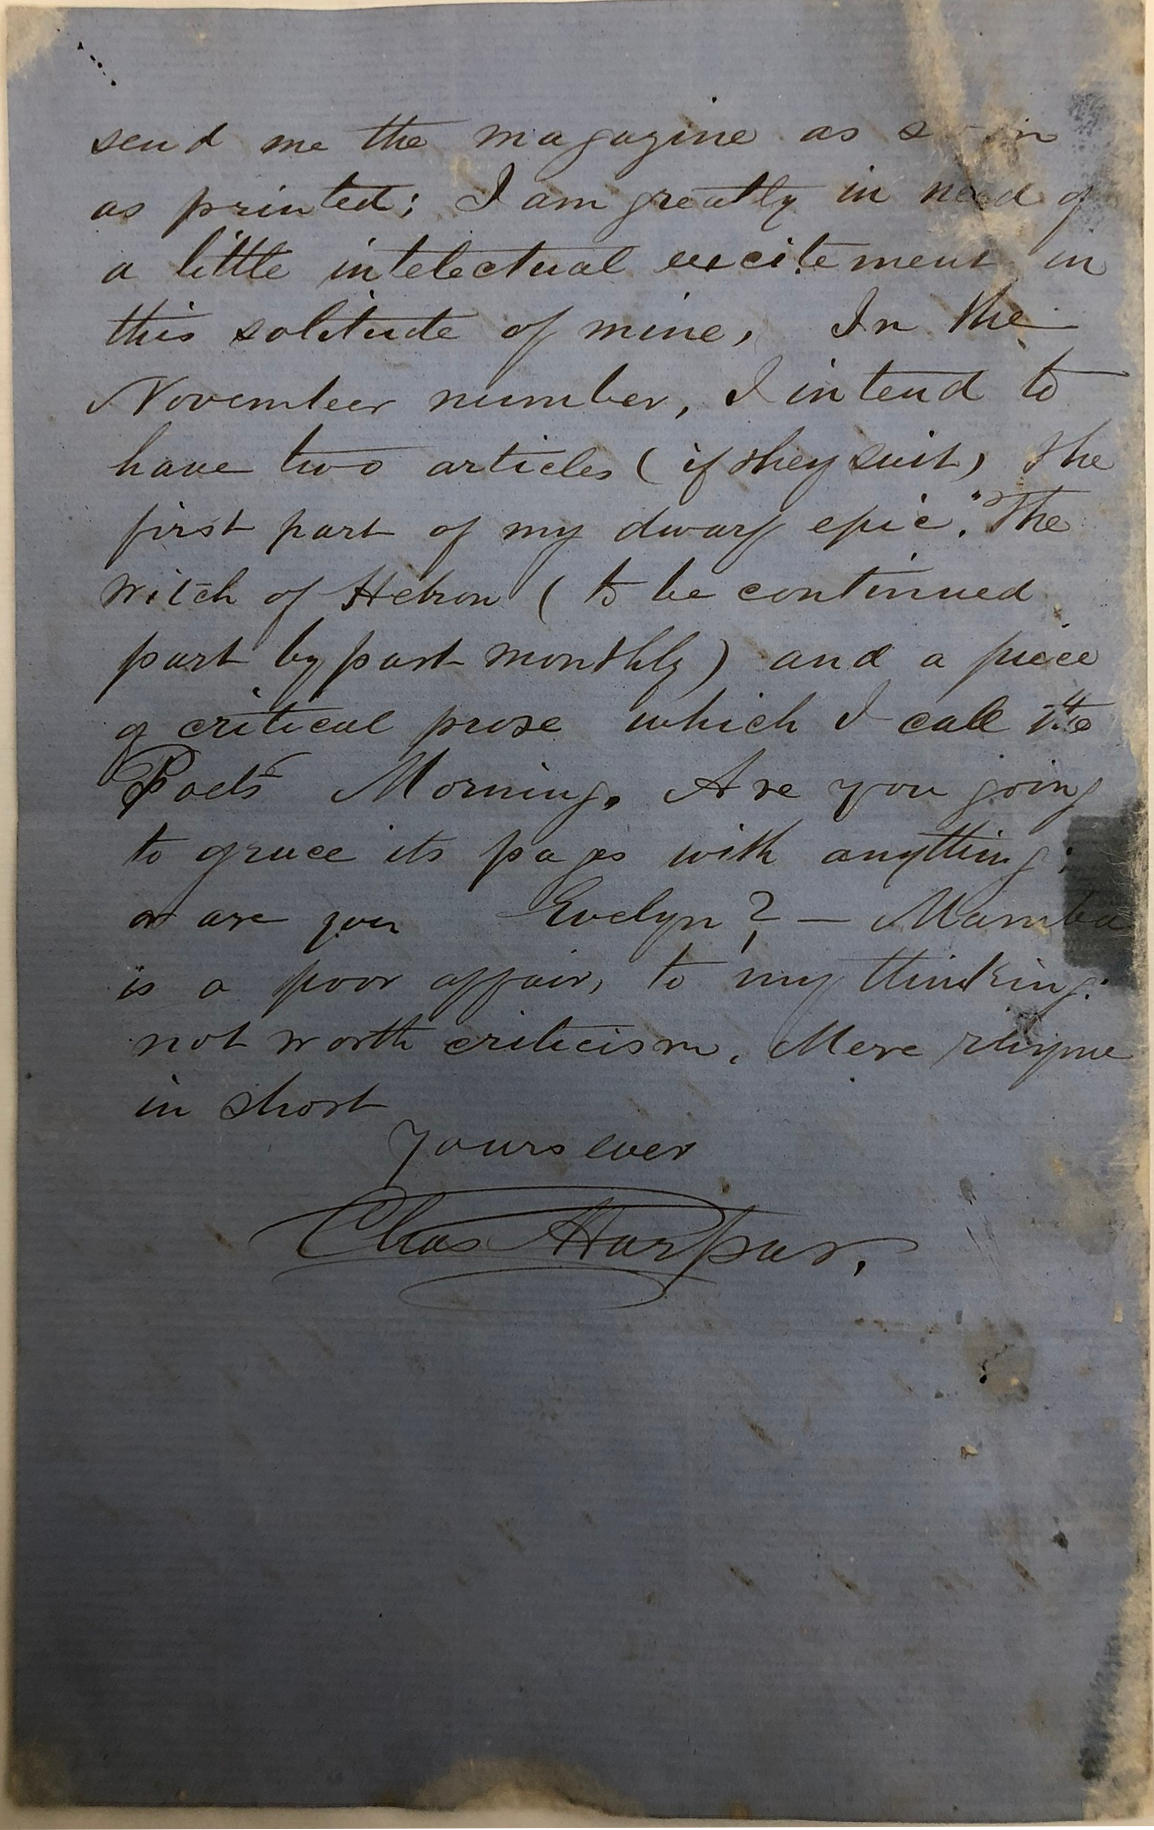 send me the magazine as soon
as printed; I am greatly in need of
a little intelectual excitement in
this solitude of mine. In the
November number, I intend to
have two articles (if they suit) the
first part of my dwarf epic. "The
Witch of Hebron (to be continued
part by part monthly) and a piece
of critical prose which I call the
Poets Morning. Are you going
to grace its pages with anything;
or are you Evelyn? — Mamba
is a poor affair, to my thinking:
not worth criticism. Mere rhyme
in short
Yours ever
Chas Harpur.